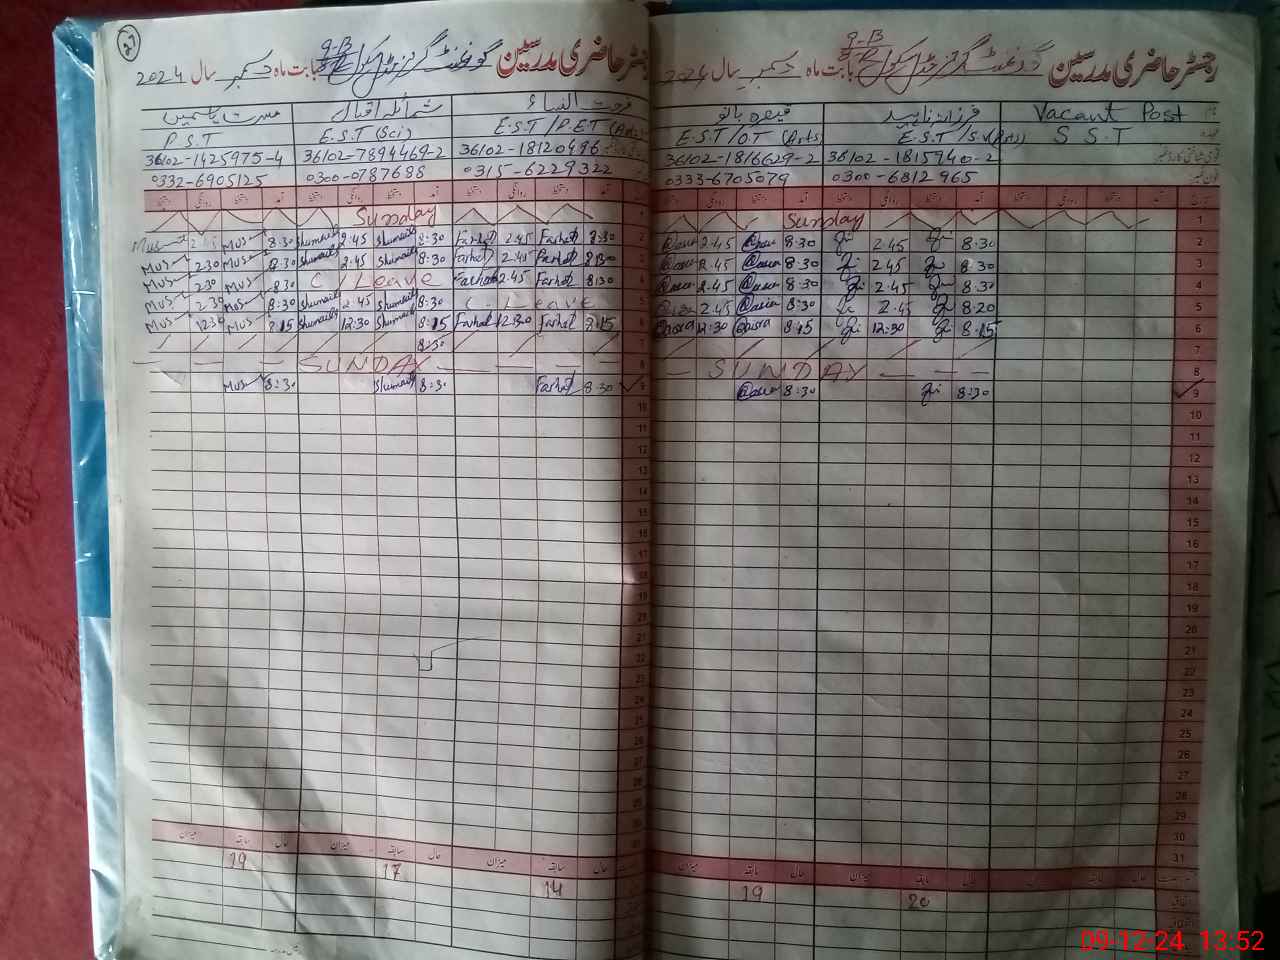 27
رجسٹر حاضری مدرسین گورنمنٹ گرلز مڈل سکول 9-B بابت ماہ دسمبر سال 2024
فرحت النساء شمائلہ اقبال مسرت یاسمین
E.S.T/P.E.T (Arts) E.S.T (Sci) P.S.T
36102-18120496 36102-7894469-2 36102-1425975-4
0315-6229322 0300-0787688 0332-6905125
Sunday
Mus 2:30 Mus 8:30 Shumaila 2:45 Shumaila 8:30 Farhat 2:45 Farhat 8:30 2
Mus 2:30 Mus 8:30 Shumaila 2:45 Shumaila 8:30 Farhat 2:45 Farhat 8:30 3
Mus 2:30 Mus 8:30 C. Leave Farhat 2:45 Farhat 8:30 4
Mus 2:30 Mus 8:30 Shumaila 2:45 Shumaila 8:30 C. Leave 5
Mus 12:30 Mus 8:15 Shumaila 12:30 Shumaila 8:15 Farhat 12:30 Farhat 8:15 6
8:30 7
SUNDAY 8
Mus 8:30 Shumaila 8:30 Farhat 8:30 9
10
11
12
13
14
15
16
17
18
19
20
21
22
23
24
25
26
27
28
29
30
31
میزان سابقہ حال میزان سابقہ حال میزان سابقہ حال
19 17 14
رجسٹر حاضری مدرسین گورنمنٹ گرلز مڈل سکول 9-B بابت ماہ دسمبر سال 2024
Vacant Post فرزانہ ناہید قیصرہ بانو
S.S.T E.S.T/S.V(Arts) E.S.T/O.T (Arts)
قومی شناختی کارڈ نمبر 36102-1815940-2 36102-1816629-2
فون نمبر 0300-6812965 0333-6705079
Sunday 1
Qasra 2:45 Qasra 8:30 2:45 8:30 2
Qasra 2:45 Qasra 8:30 2:45 8:30 3
Qasra 2:45 Qasra 8:30 2:45 8:30 4
Qasra 2:45 Qasra 8:30 2:45 8:20 5
Qasra 12:30 Qasra 8:15 12:30 8:15 6
7
SUNDAY 8
Qasra 8:30 8:30 9
10
11
12
13
14
15
16
17
18
19
20
21
22
23
24
25
26
27
28
29
30
31
میزان سابقہ حال میزان سابقہ حال سابقہ حال
19 20
09-12-24 13:52